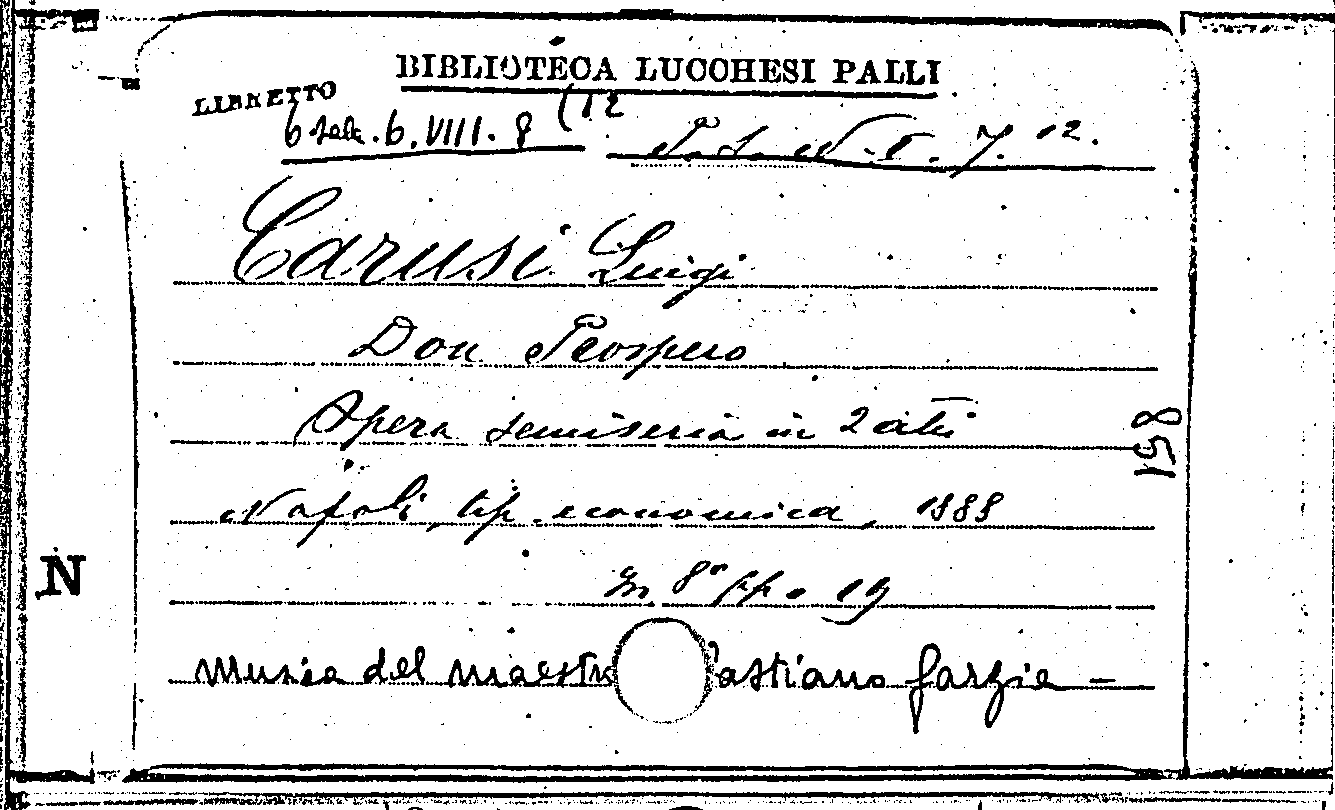 BIBLIOTECA LUCCHESI PALLI
LIBRETTO
6 Sala. 6. VIII. 8 (12
7. 12.
Carusi Luigi
Don Prospero
Opera semiseria in 2 atti
Napoli, tip. economica, 1888
In 8° pp. 19
Musica del maestro astiano Garzia -
851
N